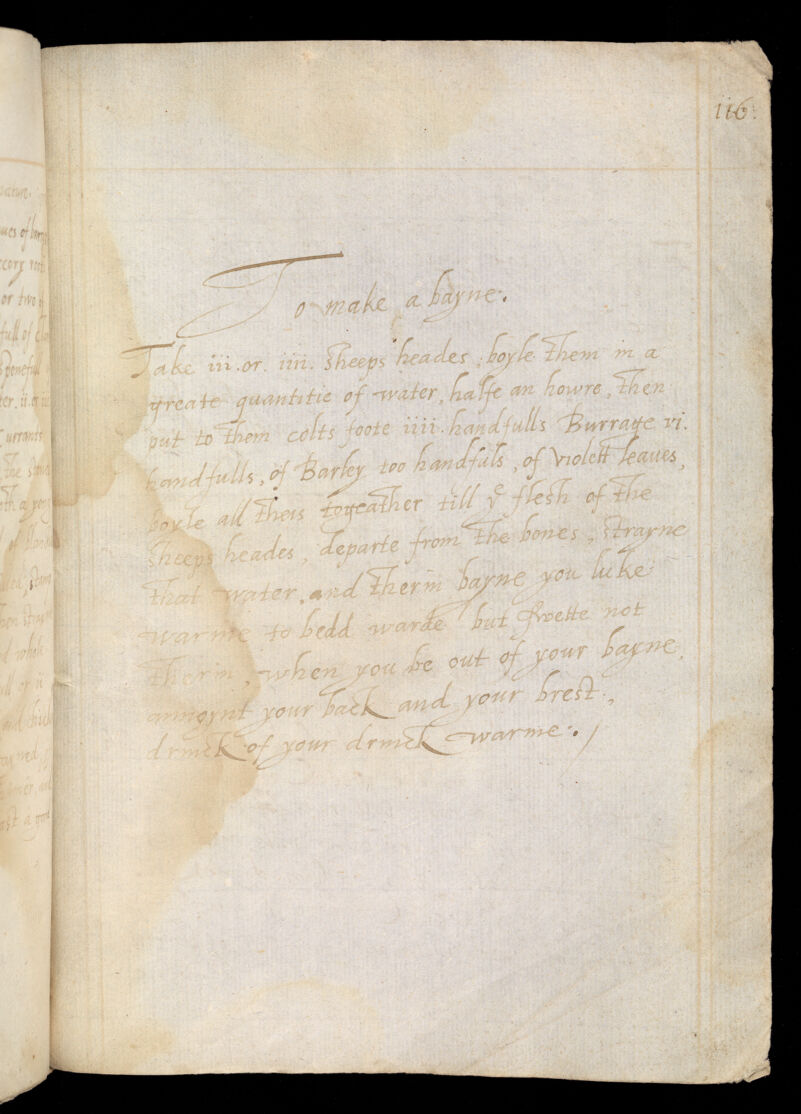 116.
To make a bayne:.
Take iii. or. iiii. sheeps heades, boyle them in a
greate quantitie of water, halfe an howre, then
put to them colts foote iiii. handfulls Burrage vi.
handfulls, of Barley too handfuls, of violett leaues,
boyle all theis togeather till yͤ flesh of the
sheeps heades, departe from the bones, strayne
that water, and therin bayne you luke
warme to bedd warde but swette not
therin, when you be out of your bayne,
annoynt your back and your brest,
drinck of your drinck warme:. /